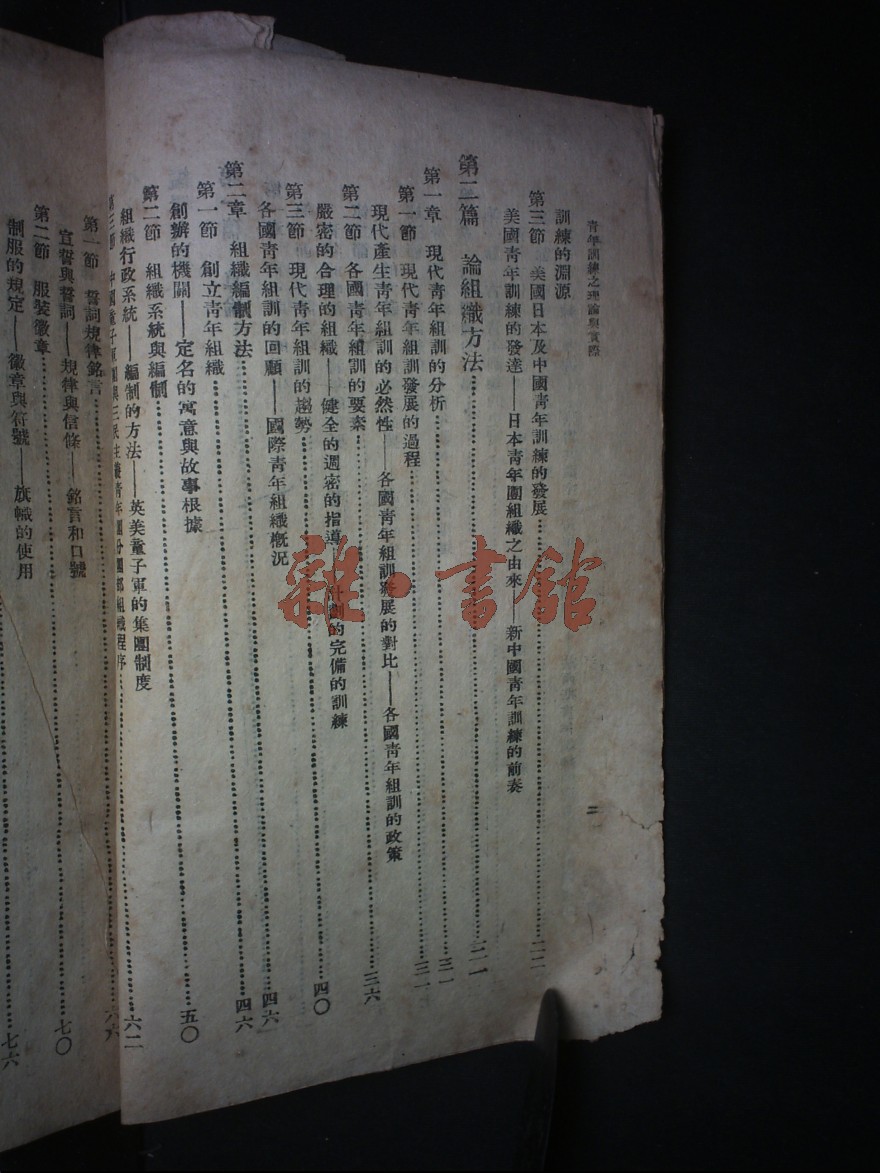 青年訓練之理論與實際
二
訓練的淵源
第三節 美國日本及中國青年訓練的發展……二二
美國青年訓練的發達——日本青年團組織之由來——新中國青年訓練的前奏
第二篇 論組織方法……三一
第一章 現代青年組訓的分析……三一
第一節 現代青年組訓發展的過程……三一
現代產生青年組訓的必然性——各國青年組訓發展的對比——各國青年組訓的政策
第二節 各國青年組訓的要素……三六
嚴密的合理的組織——健全的週密的指導——計劃的完備的訓練
第三節 現代青年組訓的趨勢……四〇
各國青年組訓的回顧——國際青年組織概況
第二章 組織編制方法……四六
第一節 創立青年組織……四六
創辦的機關——定名的寓意與故事根據
第二節 組織系統與編制……五〇
組織行政系統——編制的方法——英美童子軍的集團制度
第三節 中國童子軍團與三民主義青年團分團部組織程序……六二
第一節 誓詞規律銘言……六六
宣誓與誓詞——規律與信條——銘言和口號
第二節 服裝徽章……七〇
制服的規定——徽章與符號——旗幟的使用
七六
雜·書館